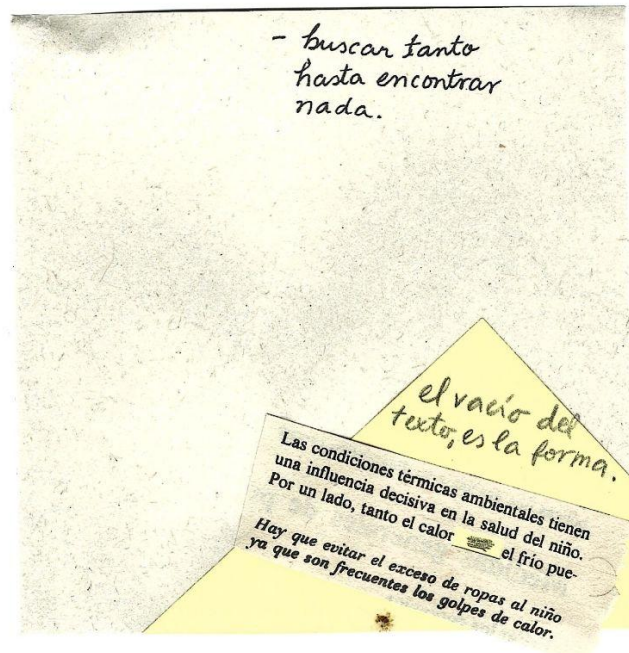 - buscar tanto
hasta encontrar
nada.
el vacío del
texto, es la forma.
Las condiciones térmicas ambientales tienen
una influencia decisiva en la salud del niño.
Por un lado, tanto el calor el frío pue-
Hay que evitar el exceso de ropas al niño
ya que son frecuentes los golpes de calor.